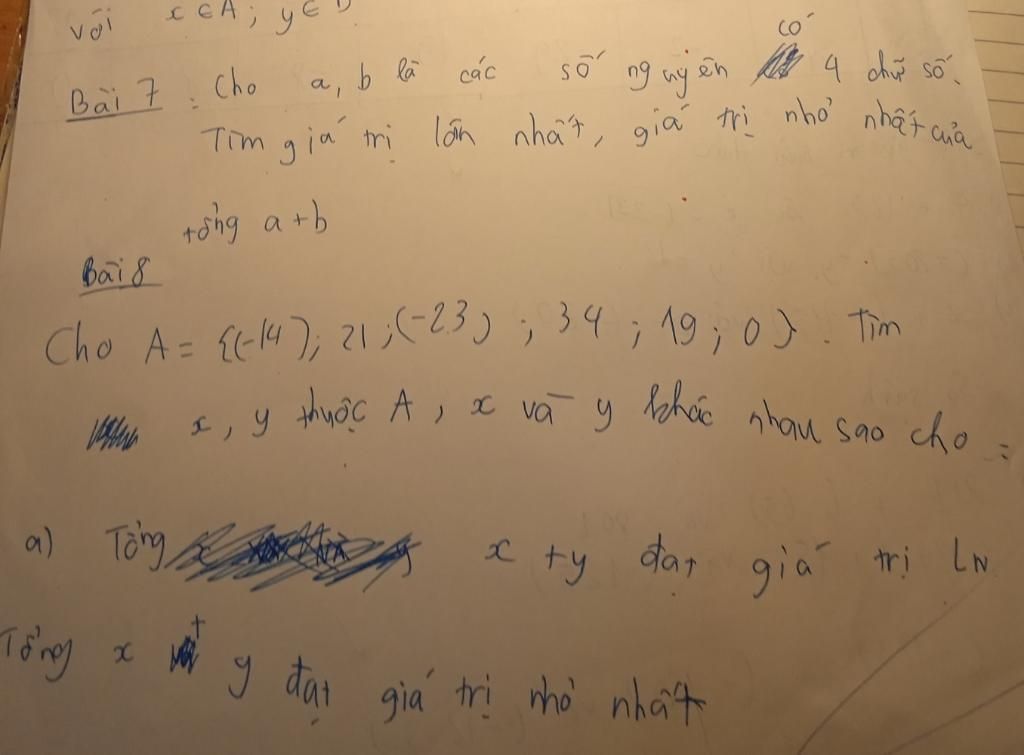 với x ∈ A ; y ∈
Bài 7 : Cho a, b là các số nguyên có 4 chữ số.
Tìm giá trị lớn nhất, giá trị nhỏ nhất của
tổng a + b
Bài 8
Cho A = {(-14); 21 ; (-23) ; 34 ; 19 ; 0} . Tìm
x, y thuộc A, x và y khác nhau sao cho :
a) Tổng x + y đạt giá trị LN
Tổng x + y đạt giá trị nhỏ nhất